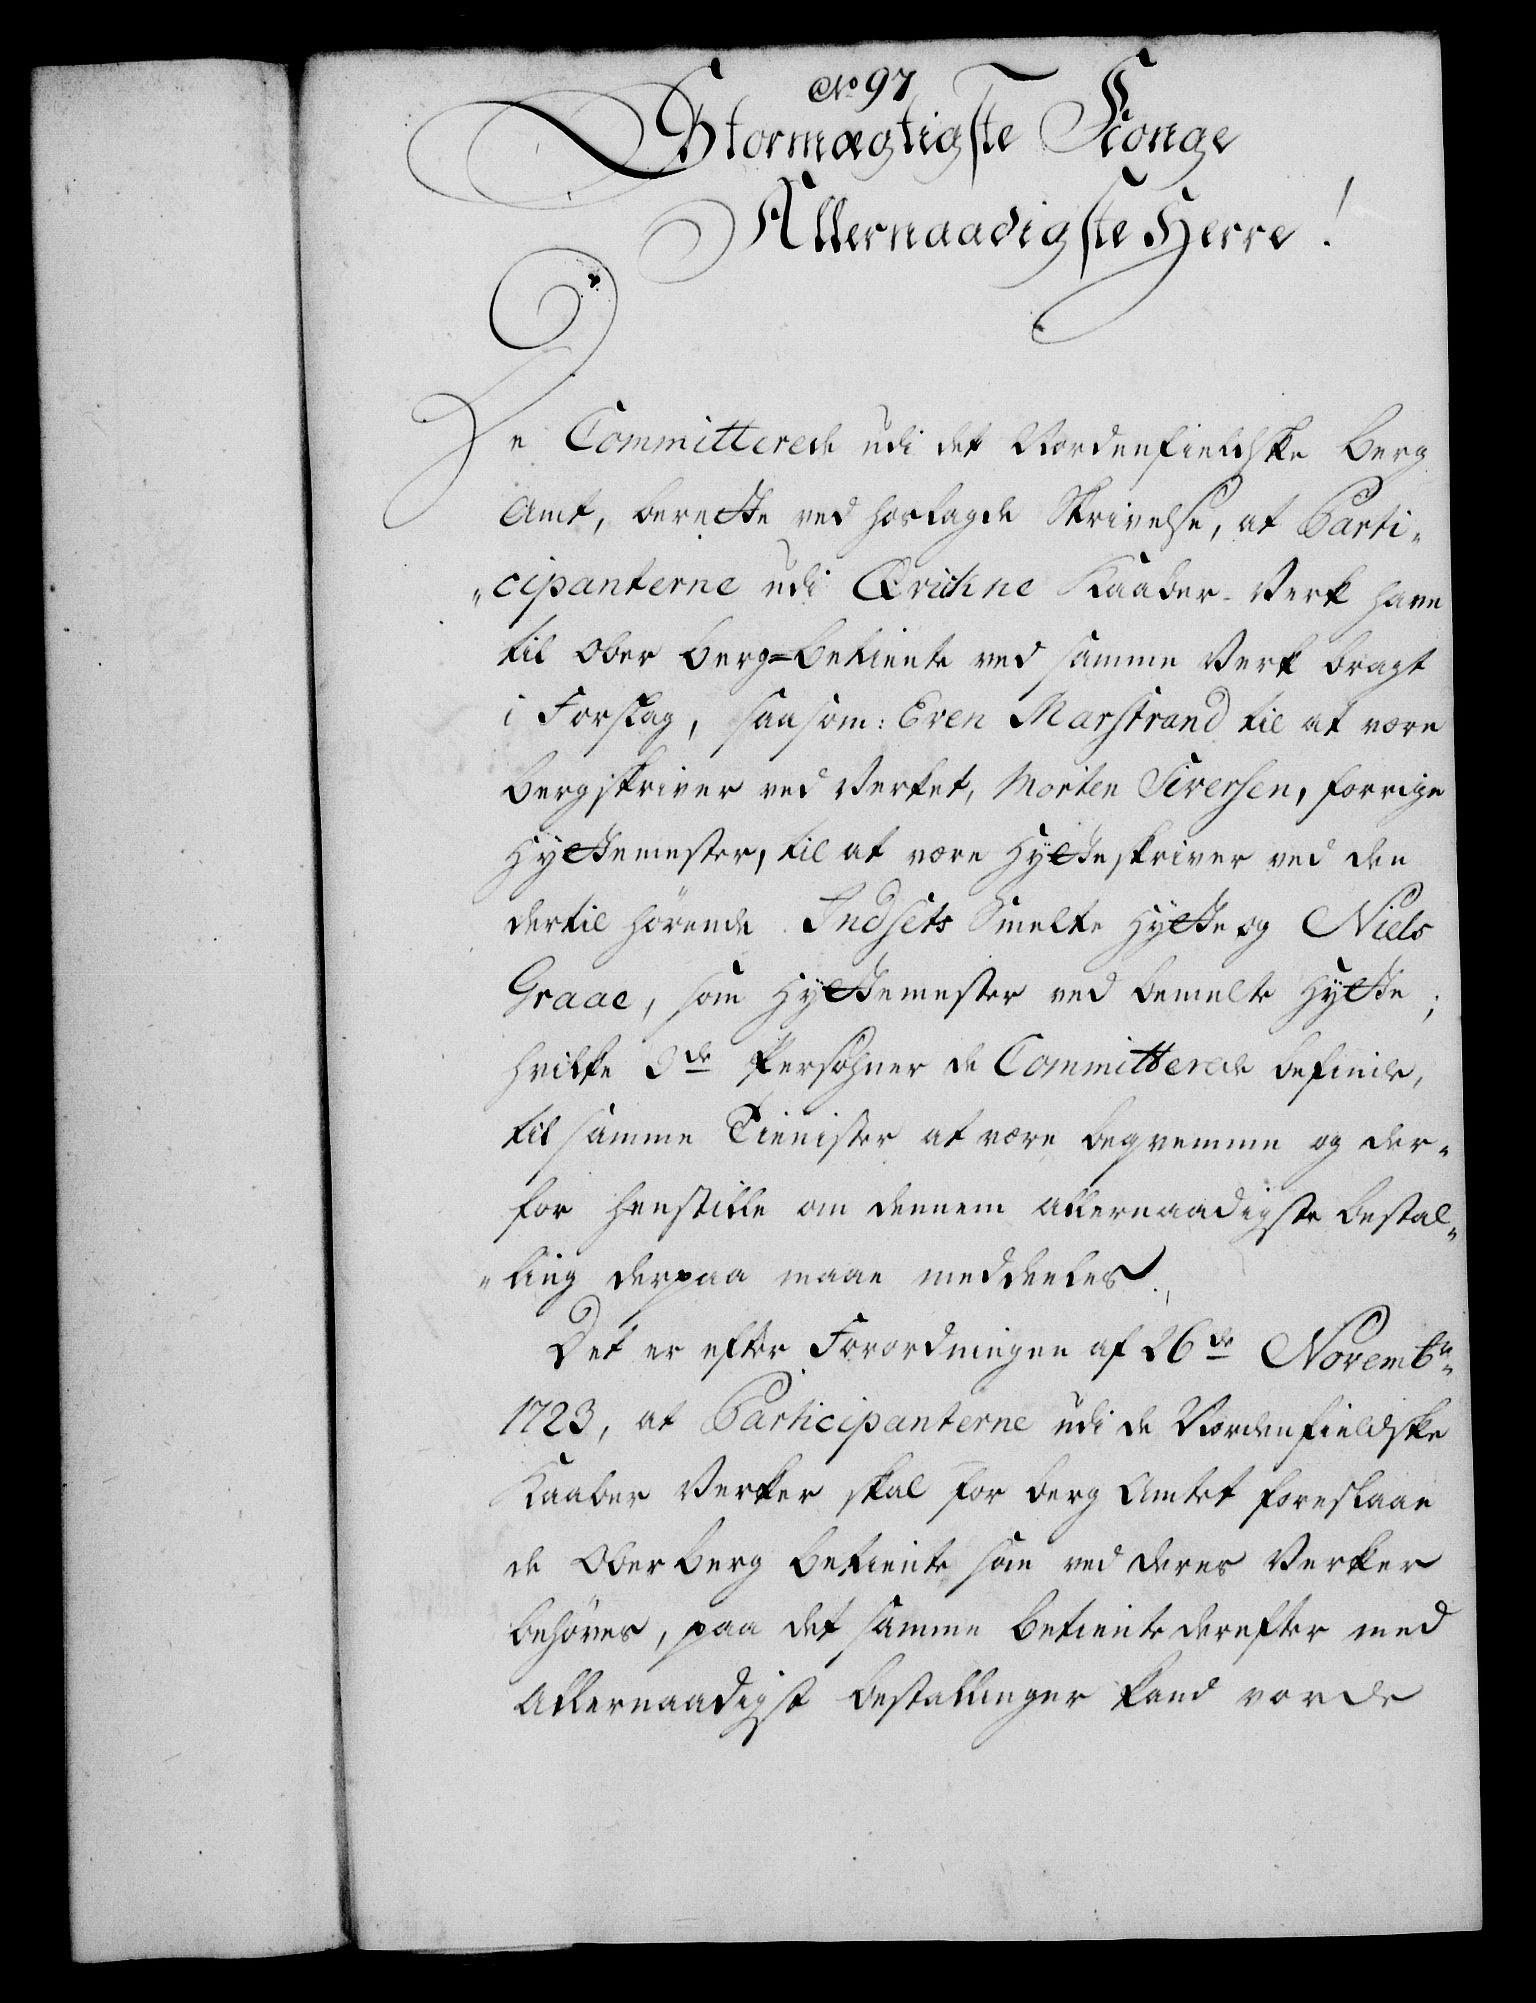 No 97
Stormægtigste Konge
Allernaadigste Herre!
De Committerede udi det Nordenfieldske Berg
Amt, berette ved hoslagde Skrivelse, at Parti„
„cipanterne udi Qvichne Kaaber-Verk have
til Ober Berg-Betiente ved samme Verk bragt
i Forslag, saasom: Even Marstrand til at være
Bergskriver ved Verket, Morten Siversen, forrige
Hyttemester, til at være Hytteskriver ved den
dertil hörende Indsets Smelte Hytte og Niels
Graae, som Hyttemester ved bemelte Hytte;
hvilke 3de Persohner de Committerede befinde,
til samme Tienister at være beqvemme og der„
for henstille om dennem allernaadigste Bestal„
„ling derpaa maae meddeeles.
Det er efter Forordningen af 26de Novembr
1723, at Participanterne udi de Nordenfieldske
Kaaber Verker skal for Berg Amtet foreslaae
de Ober Berg Betiente som ved deres Verker
behöves, paa det samme Betiente derefter med
Allernaadigst Bestallinger kand vorde